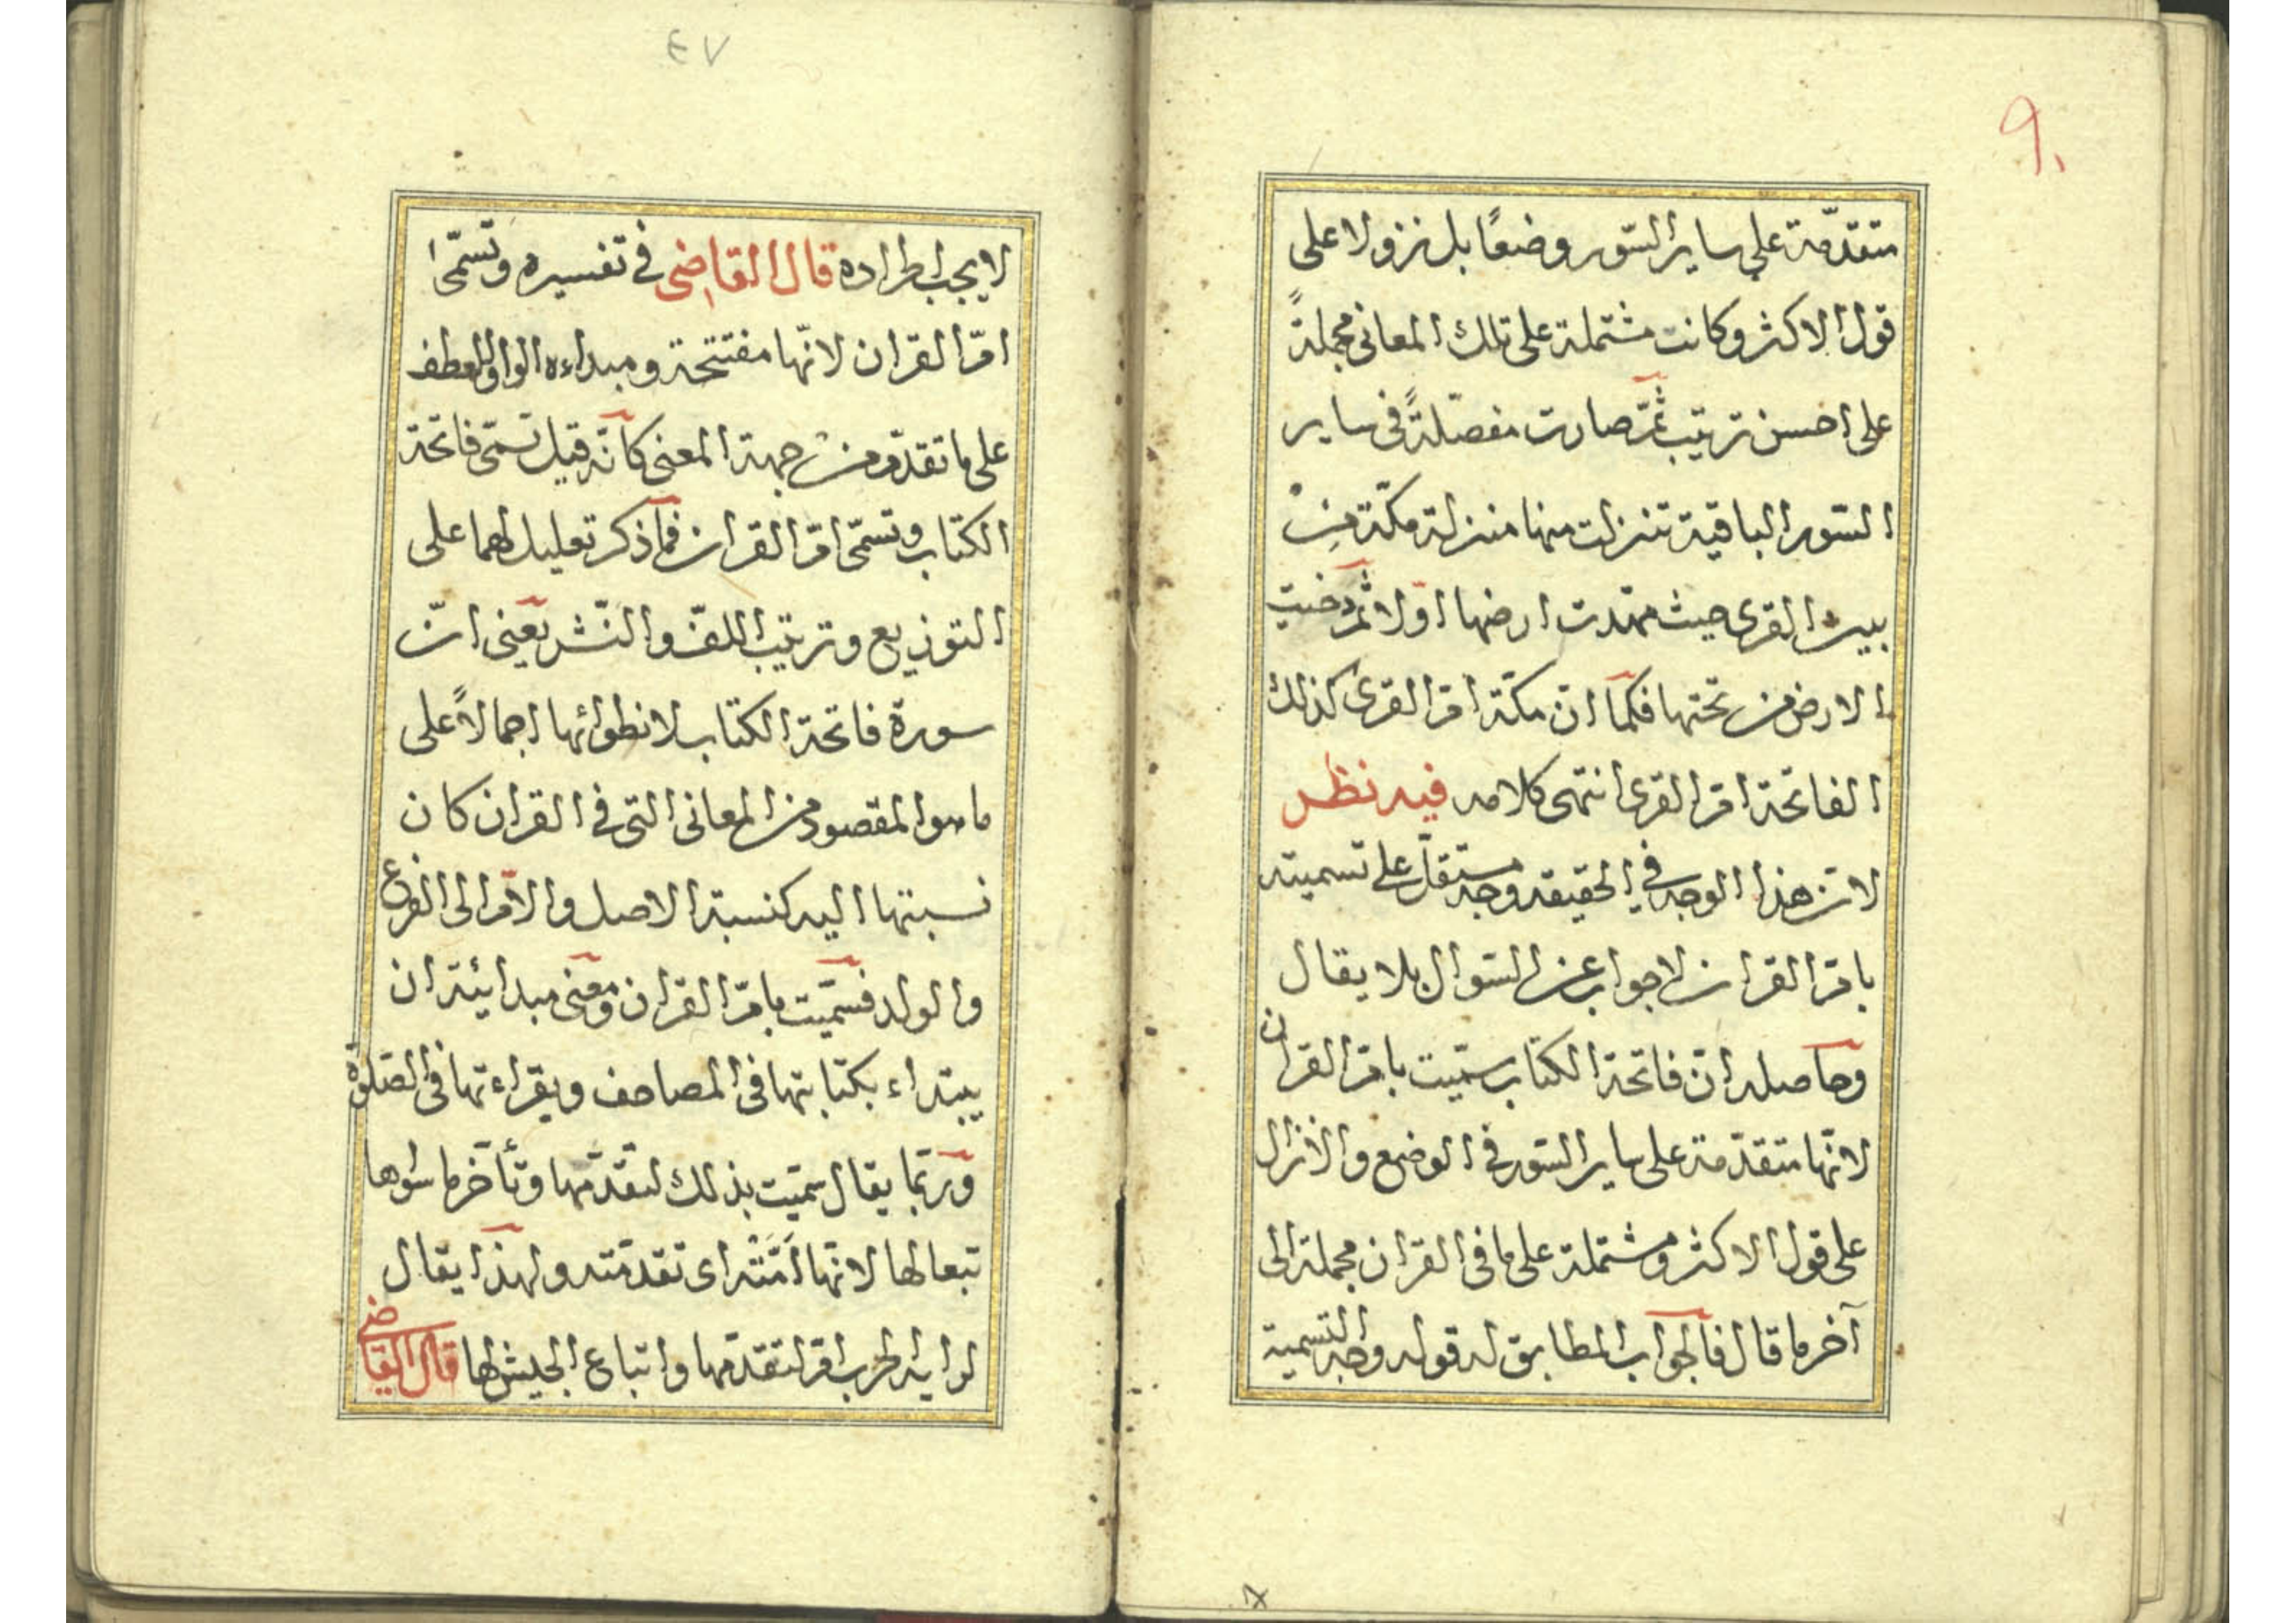 ٩٠
متقدّمة على ساير السّور وضعًا بل نزولا على
قول الاكثر وكانت مشتملة على تلك المعانى مجملةً
على احسن ترتيب ثمّ صارت مفصّلةً فى ساير
السّور الباقية تنزلت منها منزلة مكّة من
بين القرى حيث مهّدت ارضها اوّلا ثمّ دحيت
الارض من تحتها فكما انّ مكّة امّ القرى كذلك
الفاتحة امّ القرى انتهى كلامه فيه نظر
لان هذا الوجه فى الحقيقه وجه مستقلّ على تسميته
بامّ القران لا جواب عن السّوال بلا يقال
وحاصله انّ فاتحة الكتاب سمّيت بامّ القران
لانّها متقدّمة على ساير السّور فى الوضع والانزال
على قول الاكثر ومشتملة على ما فى القران مجملة الى
آخر ما قال فالجواب المطابق له قوله وجه التسمية
٤٧
لا يجب اطراده قال القاضى فى تفسيره وتسمّى
امّ القران لانّها مفتتحة ومبداءه الواو للعطف
على ما تقدّم من جهة المعنى كانّه قيل تسمّى فاتحة
الكتاب وتسمّى امّ القران فما ذكر تعليل لهما على
التوزيع وترتيب اللفّ والنّشر يعنى انّ
سورة فاتحة الكتاب لانطوائها اجمالاً على
ما هو المقصود من المعانى التى فى القران كان
نسبتها اليه كنسبة الاصل والامّ الى الفرع
والولد فسمّيت بامّ القران ومعنى مبدائيّته ان
يبتداء بكتابتها فى المصاحف ويقراءتها فى الصّلوة
وربّما يقال سمّيت بذلك لتقدّمها وتأخّر ما سوٰها
تبعا لها لانّها اَمَّتْه اى تقدمّته ولهذا يقال
لراية الحرب امّ لتقدّمها واتباع الجيش لها قال القاضى